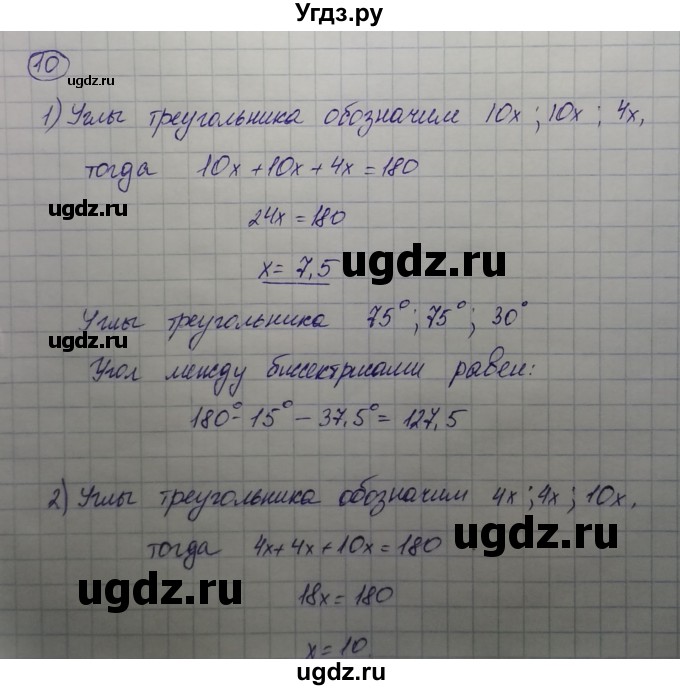 Угдз.ру
10
ugdz.ru
1) Углы треугольника обозначим 10x; 10x; 4x,
тогда 10x + 10x + 4x = 180
ugdz.ru
24x = 180
x = 7,5
ugdz.ru
Углы треугольника 75°; 75°; 30°
Угол между биссектрисами равен:
180° - 15° - 37,5° = 127,5
2) Углы треугольника обозначим 4x; 4x; 10x,
ugdz.ru
тогда 4x + 4x + 10x = 180
ugdz.ru
18x = 180
x = 10
ugdz.ru